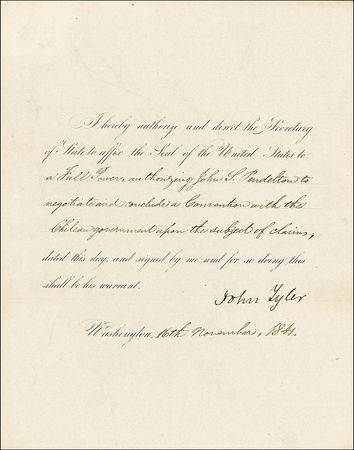 I hereby authorize and direct the Secretary
of State to affix the Seal of the United States to
a Full Power, authorizing John S. Pendelton to
negotiate and conclude a Convention with the
Chilean government upon the subject of claims,
dated this day, and signed by me and for so doing this
shall be his warrant.
John Tyler
Washington, 16th November, 1841.